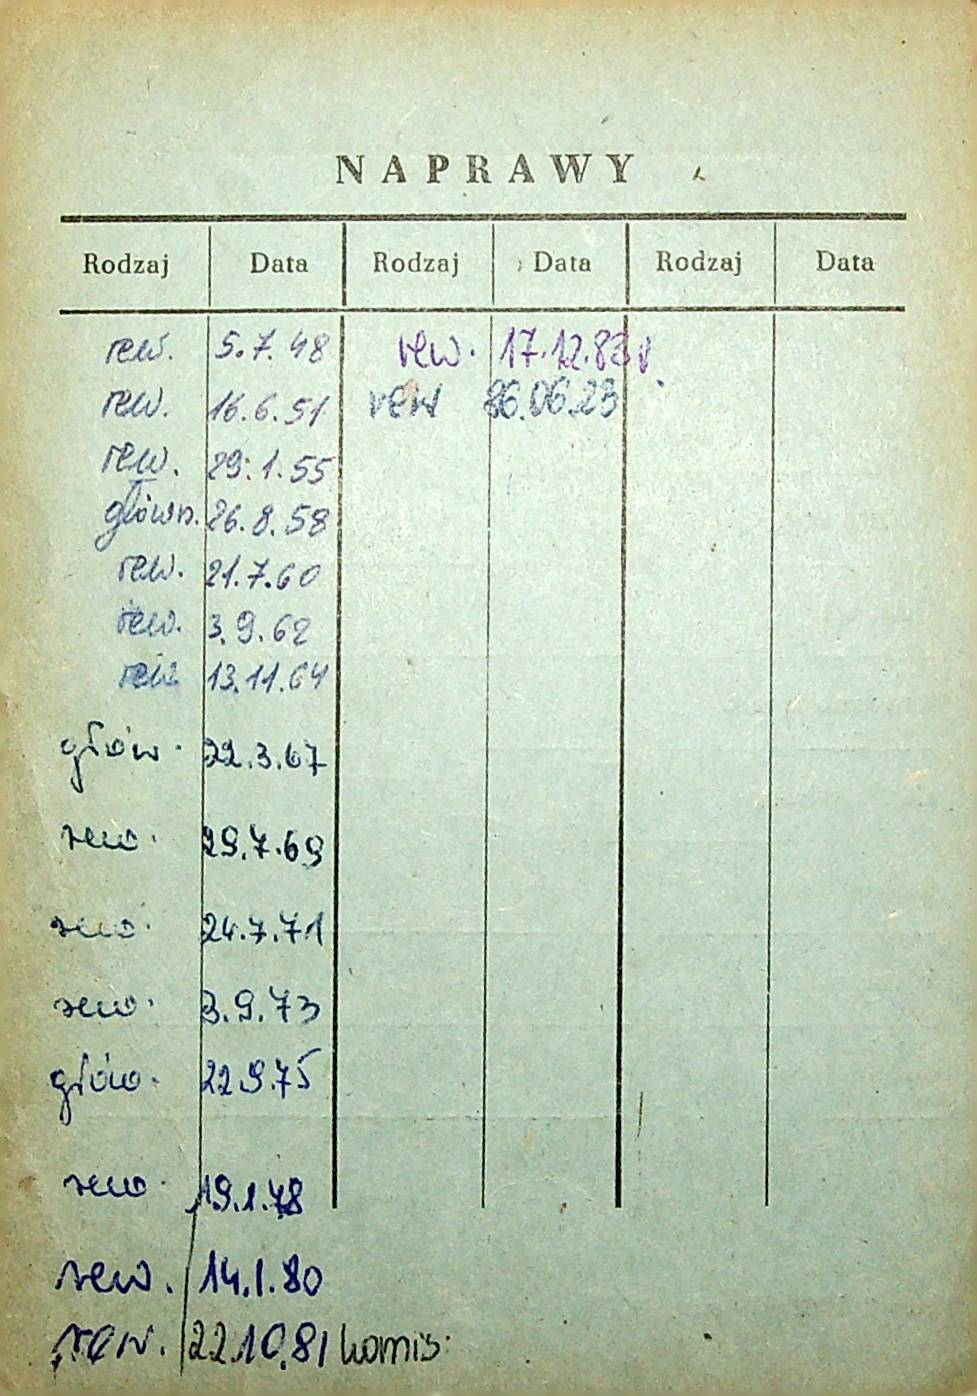 NAPRAWY
Rodzaj Data Rodzaj Data Rodzaj Data
rew. 5.7.48 rew. 17.12.83r.
rew. 16.6.51 rew 86.06.23
rew. 29.1.55
główn. 26.8.58
rew. 21.7.60
rew. 3.9.62
rew. 13.11.64
głów. 22.3.67
rew. 29.7.69
rew. 24.7.71
rew. 3.9.73
głów. 22.9.75
rew. 19.1.78
rew. 14.1.80
rew. 22.10.81 komis.